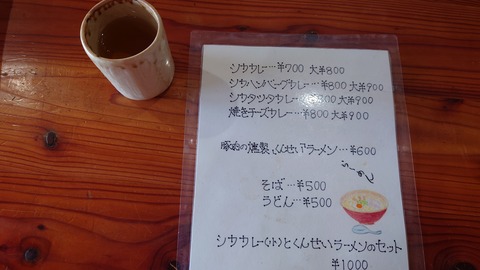 シカカレー…¥700 大¥800
シカハンバーグカレー…¥800 大¥900
シカタツタカレー…¥800 大¥900
焼きチーズカレー…¥800 大¥900
豚飴の燻製くんせいラーメン…¥600
らーめん
そば…¥500
うどん…¥500
シカカレー(小)とくんせいラーメンのセット
¥1000